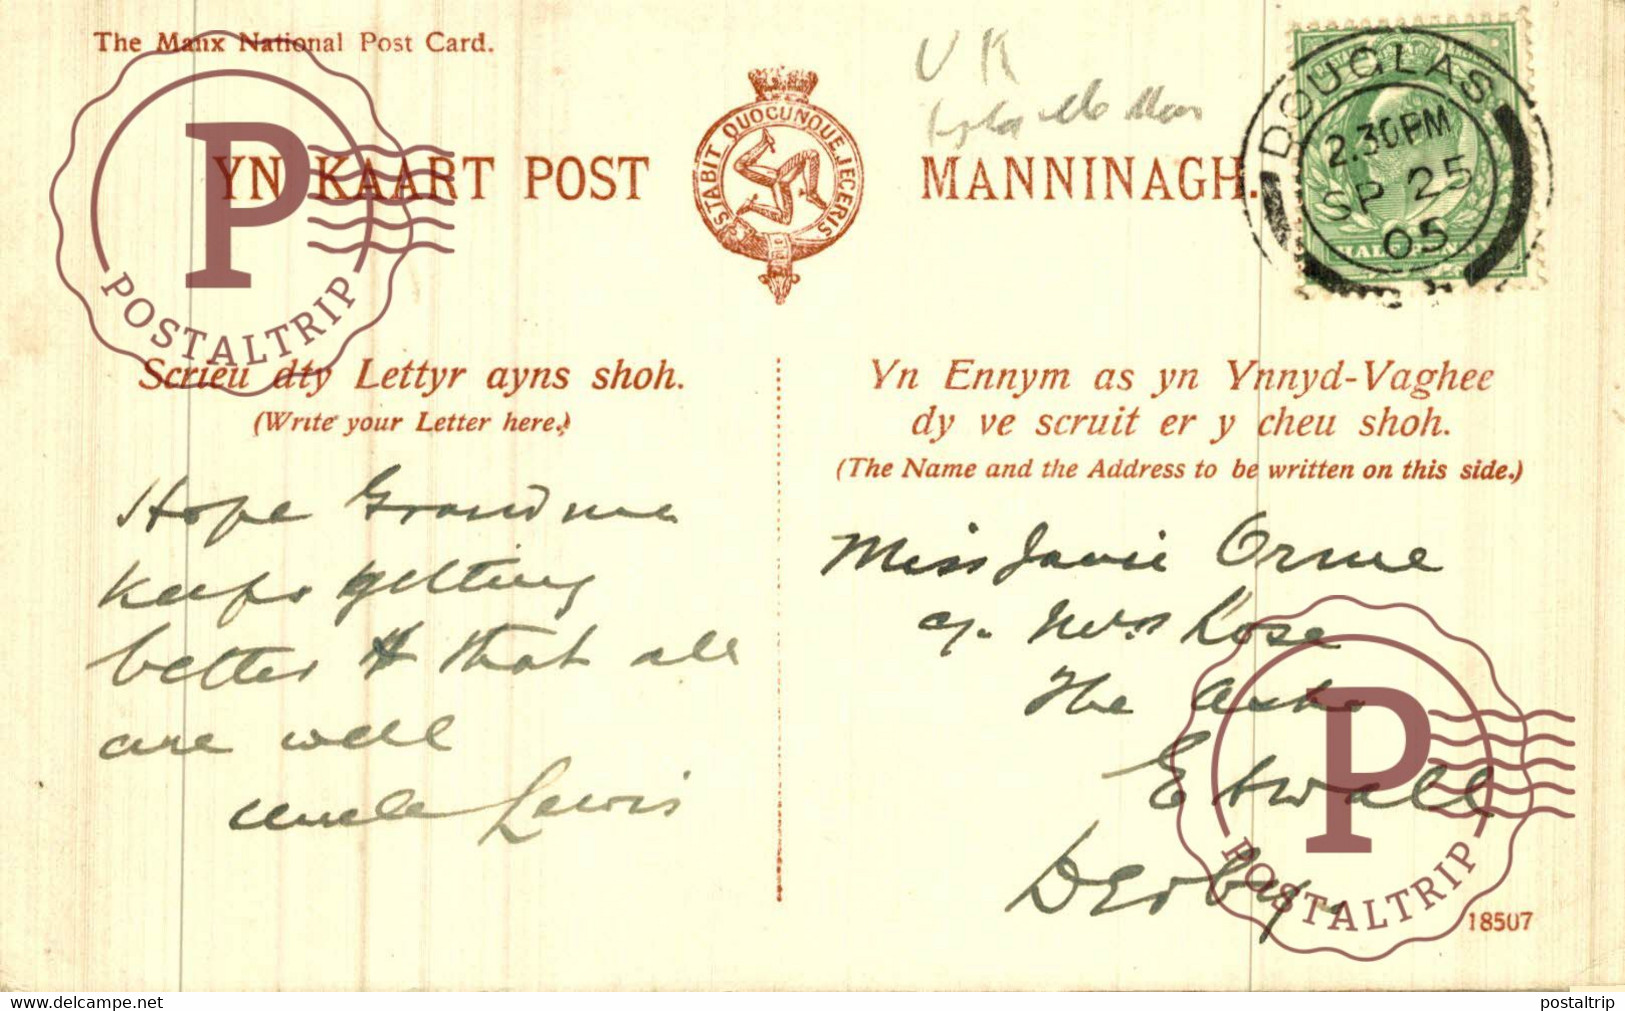 The Manx National Post Card.
U K
DOUGLAS
2.30PM
SP 25
05
HALFPENNY
YN KAART POST
STABIT QUOCUNQUE JECERIS
MANNINAGH.
P
POSTALTRIP
Scrieu dty Lettyr ayns shoh.
(Write your Letter here.)
Yn Ennym as yn Ynnyd-Vaghee
dy ve scruit er y cheu shoh.
(The Name and the Address to be written on this side.)
Hope Grandma
keeps getting
better & that all
are well
Uncle Lewis
Miss Janie Orme
c/o Mrs Rose
The Ashes
Etwall
Derby.
P
POSTALTRIP
18507
https://www.delcampe.net
postaltrip